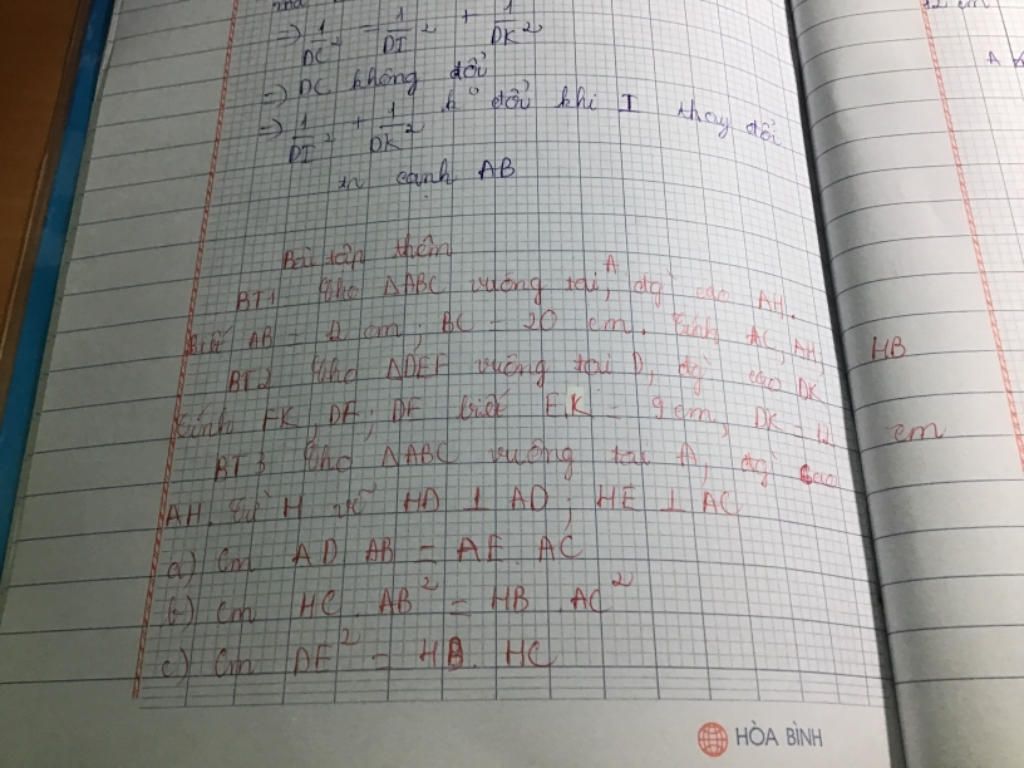 ⇒ 1/DC² = 1/DI² + 1/DK²
⇒ DC không đổi
⇒ 1/DI² + 1/DK² k° đổi khi I thay đổi
trên cạnh AB
Bài tập thêm
BT1 Cho ΔABC vuông tại A, đg cao AH.
Biết AB = 12 cm; BC = 20 cm. Tính AC, AH, HB
BT2 Cho ΔDEF vuông tại D, đg cao DK
Tính FK, DE; DF biết EK = 9 cm, DK = 12 cm
BT3 Cho ΔABC vuông tại A, đg cao
AH. Từ H vẽ HD ⊥ AD; HE ⊥ AC
a) Cm AD. AB = AE. AC
b) Cm HC. AB² = HB. AC²
c) Cm DE² = HB. HC
HÒA BÌNH